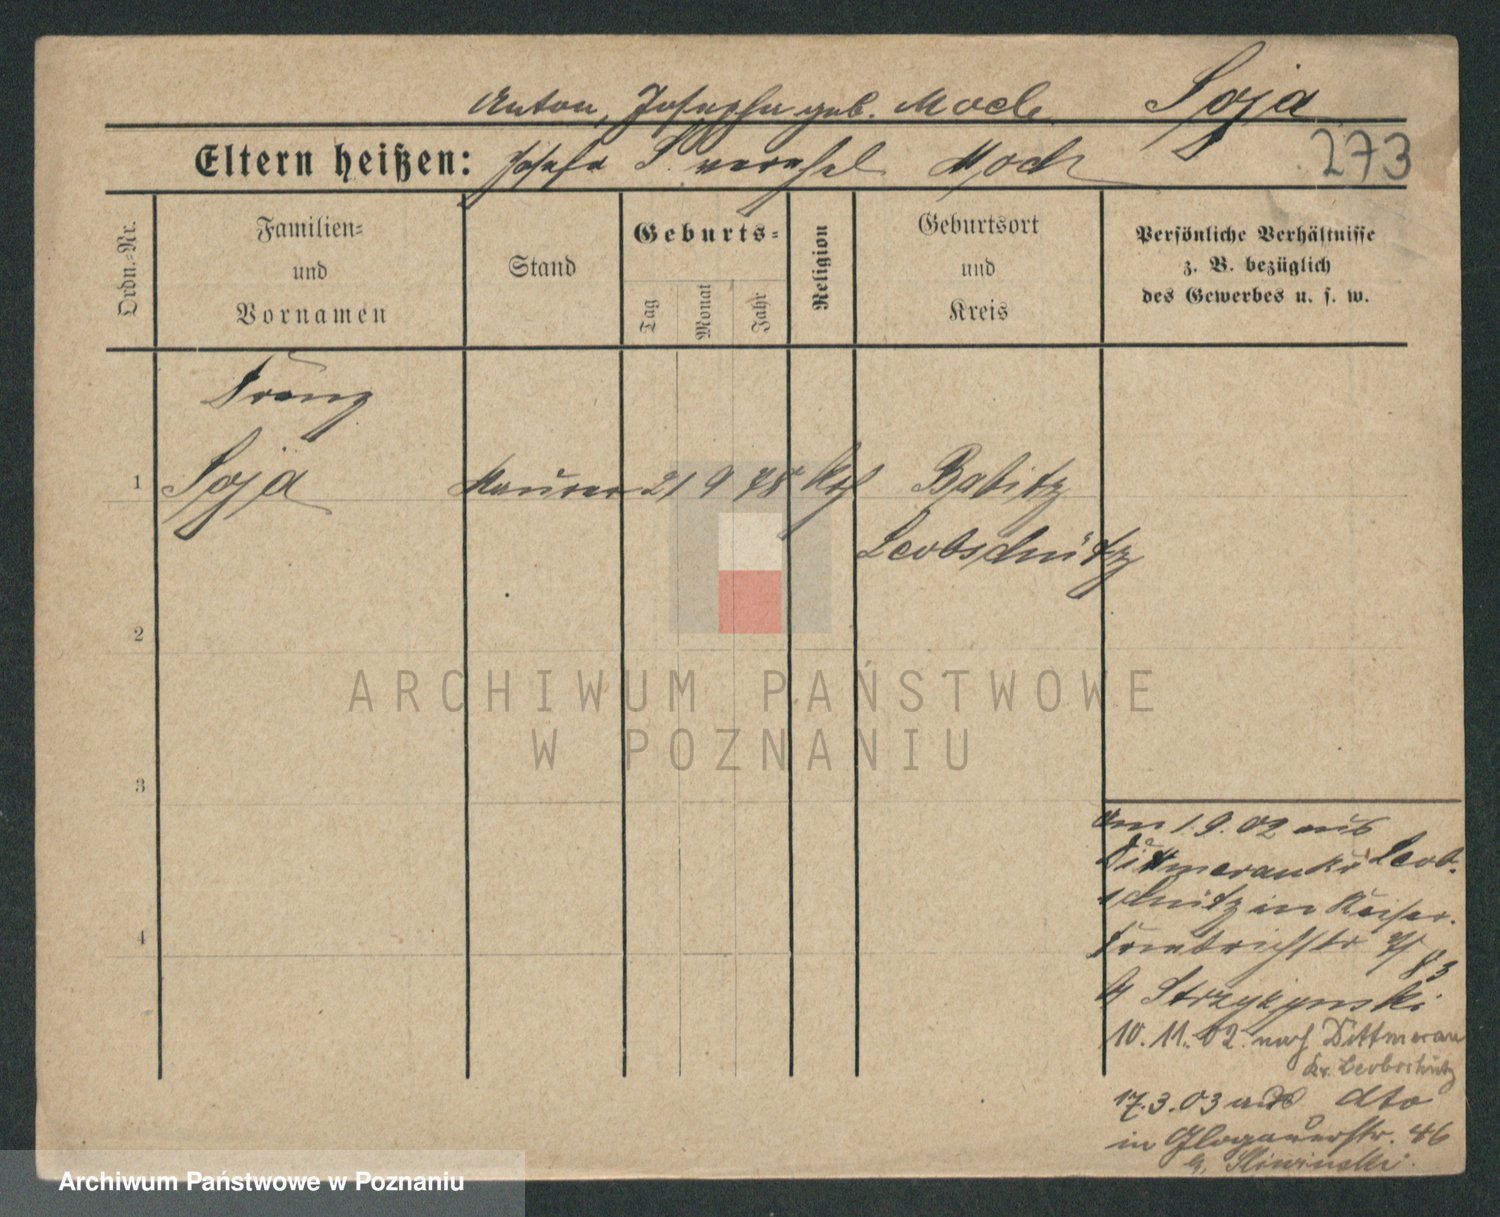 Anton, Josepha geb. Moch Soja
Eltern heißen: Josefa Moch
273
Ordn.-Nr.
Familien-
und
Vornamen
Stand
Geburts-
Tag
Monat
Jahr
Religion
Geburtsort
und
Kreis
Persönliche Verhältnisse
z. B. bezüglich
des Gewerbes u. s. w.
Franz
1 Soja Maurer 21 9 78 Kth Babitz
Leobschütz
2
3
4
Am 1.9.02 aus
Dittmerau Kr Leob-
schütz in Kaiser-
Friedrichstr 83
b/ Strzyzynski
10.11.02. nach Dittmerau
Kr. Leobschütz
17.3.03 aus dto
in Glogauerstr. 46
b. Sliwinski.
ARCHIWUM PAŃSTWOWE
W POZNANIU
Archiwum Państwowe w Poznaniu